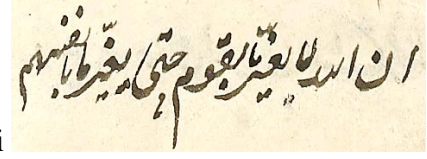 ان الله لا یغیّر ما بقوم حتی یغیّر ما بانفسهم
i